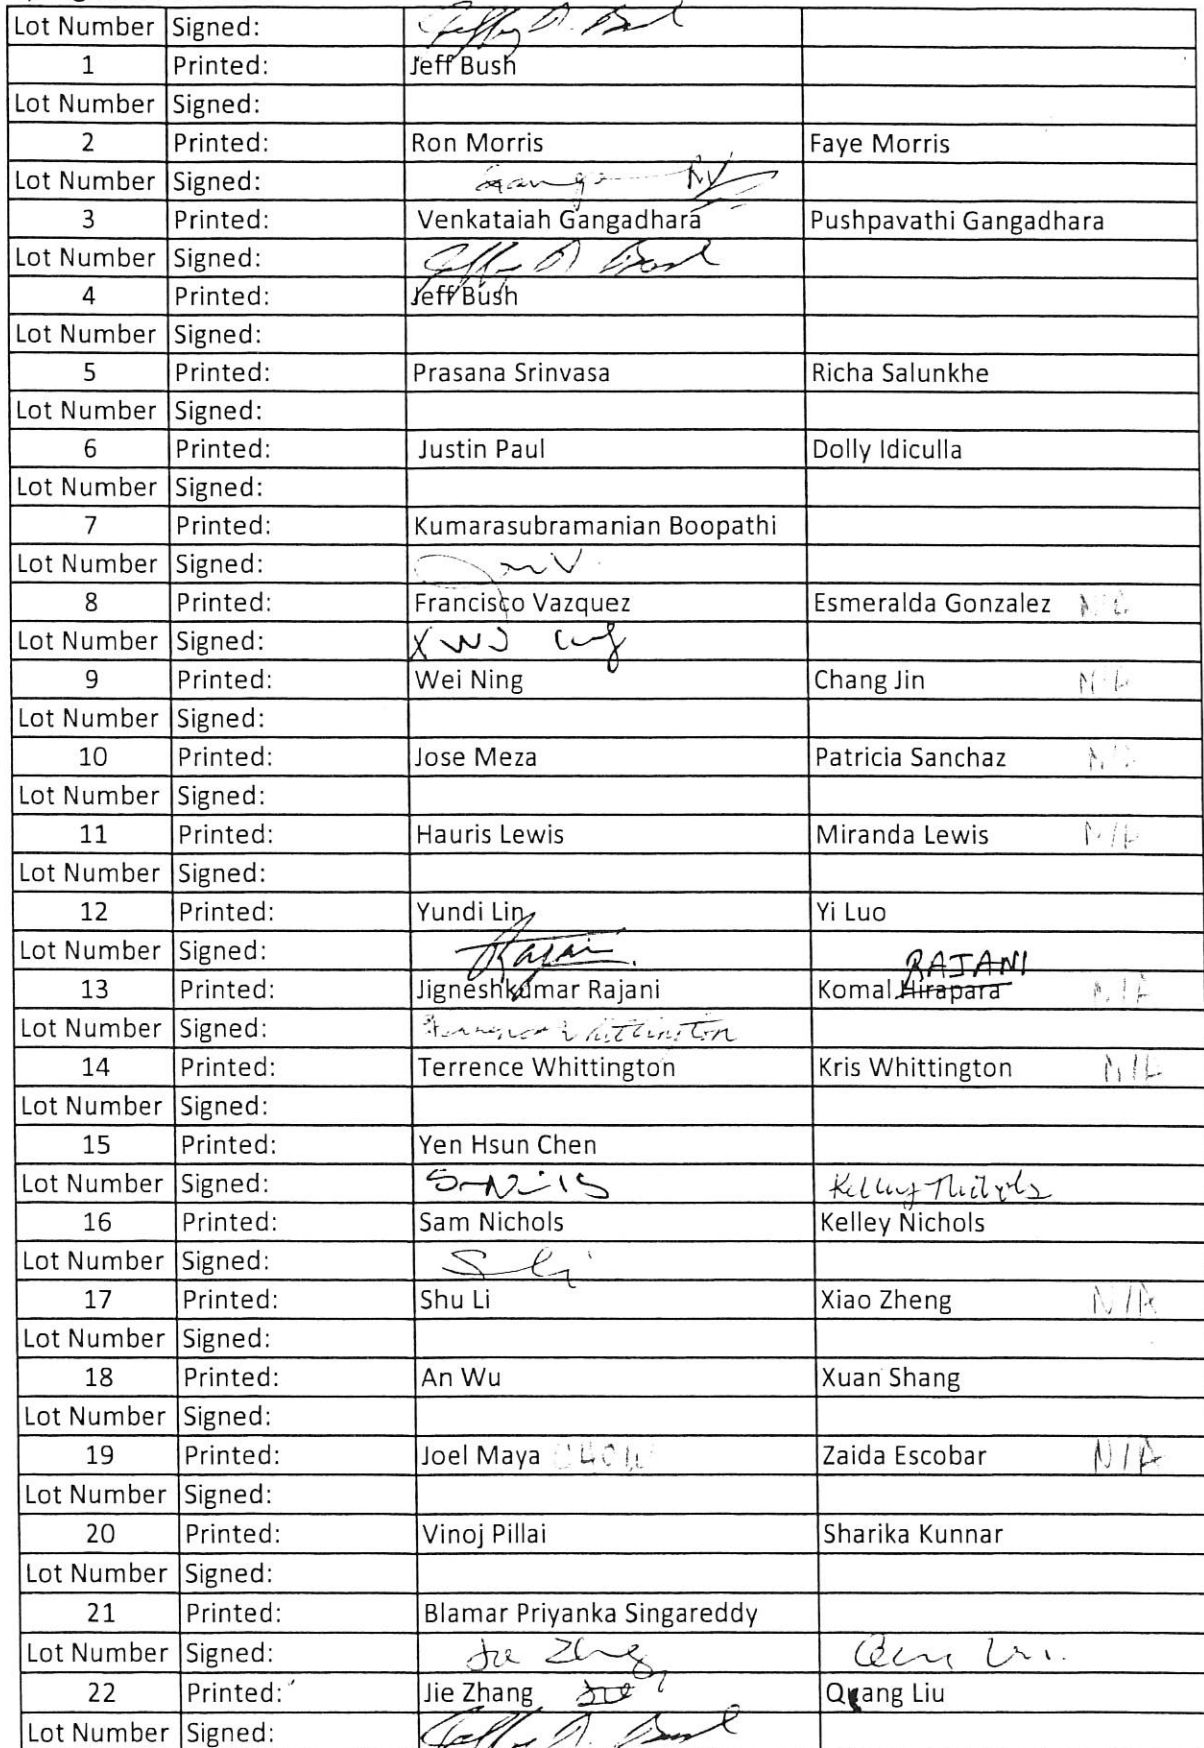 Lot Number Signed:
1 Printed: Jeff Bush
Lot Number Signed:
2 Printed: Ron Morris Faye Morris
Lot Number Signed:
3 Printed: Venkataiah Gangadhara Pushpavathi Gangadhara
Lot Number Signed:
4 Printed: Jeff Bush
Lot Number Signed:
5 Printed: Prasana Srinvasa Richa Salunkhe
Lot Number Signed:
6 Printed: Justin Paul Dolly Idiculla
Lot Number Signed:
7 Printed: Kumarasubramanian Boopathi
Lot Number Signed:
8 Printed: Francisco Vazquez Esmeralda Gonzalez
Lot Number Signed:
9 Printed: Wei Ning Chang Jin N/A
Lot Number Signed:
10 Printed: Jose Meza Patricia Sanchaz N/A
Lot Number Signed:
11 Printed: Hauris Lewis Miranda Lewis N/A
Lot Number Signed:
12 Printed: Yundi Lin Yi Luo
Lot Number Signed: Rajani RAJANI
13 Printed: Jigneshkumar Rajani Komal Hirapara N/A
Lot Number Signed: Terrence Whittington
14 Printed: Terrence Whittington Kris Whittington N/A
Lot Number Signed:
15 Printed: Yen Hsun Chen
Lot Number Signed: Kelley Nichols
16 Printed: Sam Nichols Kelley Nichols
Lot Number Signed: S Li
17 Printed: Shu Li Xiao Zheng N/A
Lot Number Signed:
18 Printed: An Wu Xuan Shang
Lot Number Signed:
19 Printed: Joel Maya Zaida Escobar N/A
Lot Number Signed:
20 Printed: Vinoj Pillai Sharika Kunnar
Lot Number Signed:
21 Printed: Blamar Priyanka Singareddy
Lot Number Signed: Jie Zhang
22 Printed: Jie Zhang Quang Liu
Lot Number Signed: